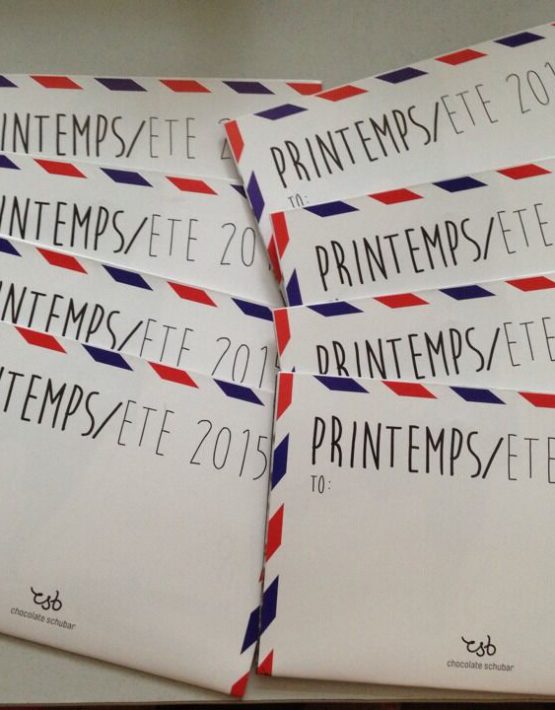 PRINTEMPS/ETE
PRINTEMPS/ETE 20
PRINTEMPS/ETE 201
PRINTEMPS/ETE 2015
csb
chocolate schubar
PRINTEMPS/ETE 201
TO:
PRINTEMPS/ETE
PRINTEMPS/ETE
PRINTEMPS/ETE
TO:
csb
chocolate schubar